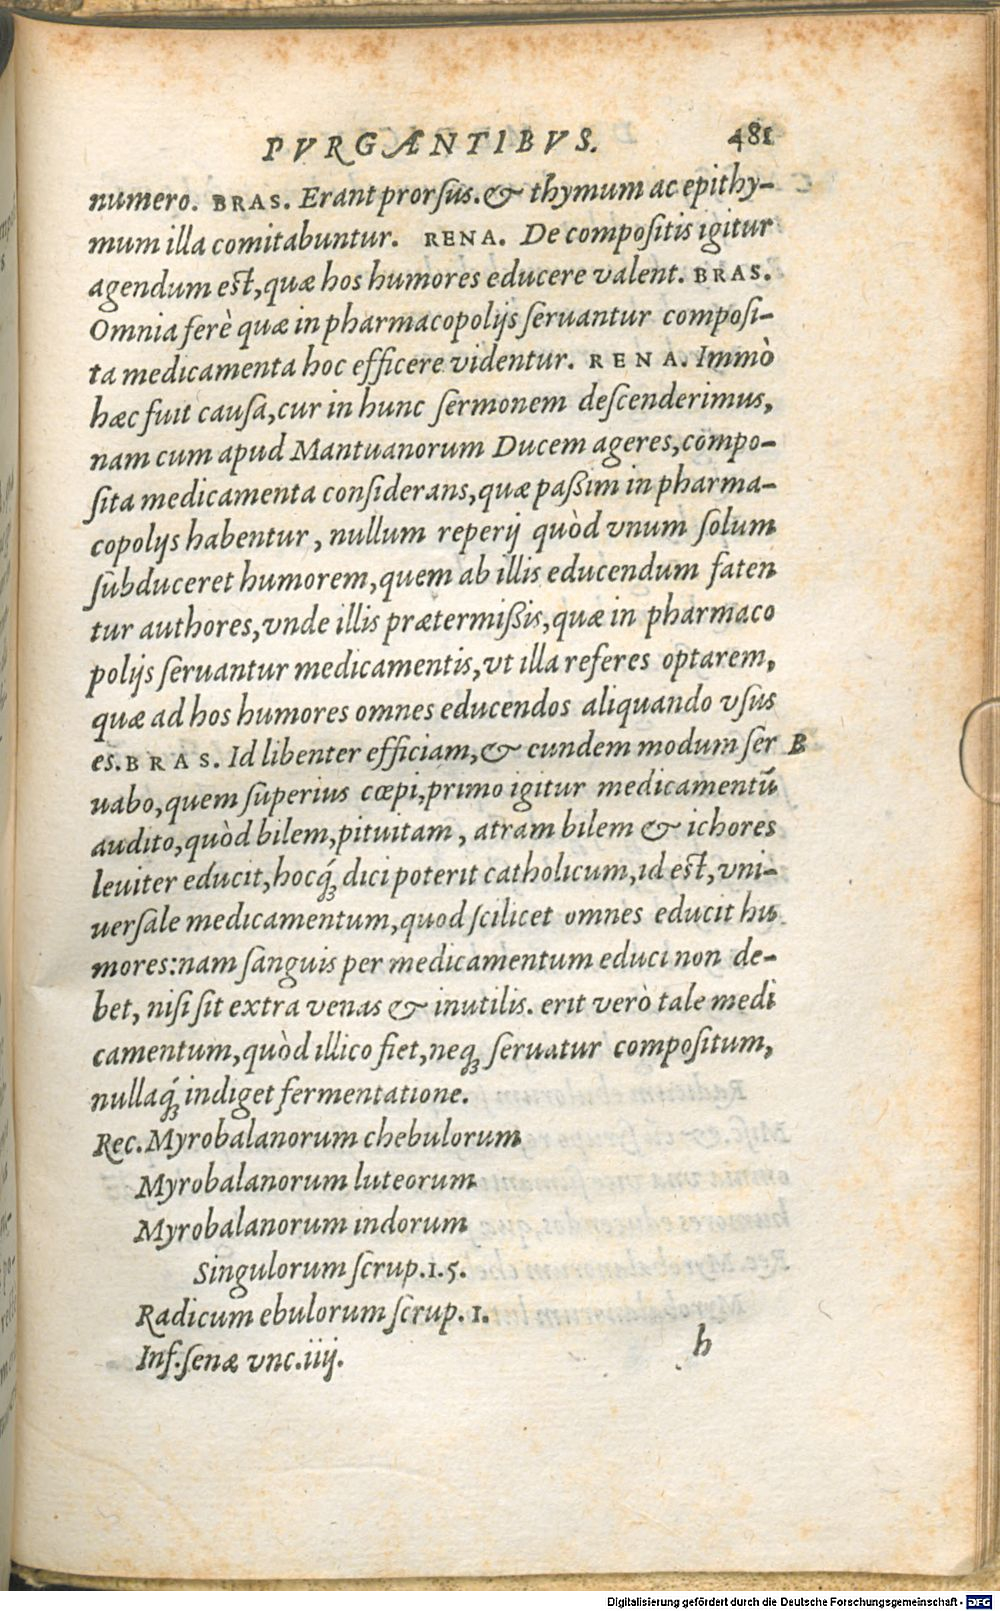 PVRGANTIBVS. 481
numero. BRAS. Erant prorſus. & thymum ac epithy-
mum illa comitabuntur. RENA. De compoſitis igitur
agendum est, quæ hos humores educere valent. BRAS.
Omnia ferè quæ in pharmacopolijs ſeruantur compoſi-
ta medicamenta hoc efficere videntur. RENA. Immò
hæc fuit cauſa, cur in hunc ſermonem deſcenderimus,
nam cum apud Mantuanorum Ducem ageres, compo-
ſita medicamenta conſiderans, quæ paßim in pharma-
copolijs habentur, nullum reperij quòd vnum ſolum
ſubduceret humorem, quem ab illis educendum faten
tur authores, vnde illis prætermißis, quæ in pharmaco
polijs ſeruantur medicamentis, vt illa referes optarem,
quæ ad hos humores omnes educendos aliquando vſus
es. BRAS. Id libenter efficiam, & eundem modum ſer B
uabo, quem ſuperius cœpi, primo igitur medicamentū
audito, quòd bilem, pituitam, atram bilem & ichores
leuiter edúcit, hocq́; dici poterit catholicum, id est, vni-
uerſale medicamentum, quod ſcilicet omnes educit hu
mores: nam ſanguis per medicamentum educi non de-
bet, niſi ſit extra venas & inutilis. erit verò tale medi
camentum, quòd illico fiet, neq; ſeruatur compoſitum,
nullaq́; indiget fermentatione.
Rec. Myrobalanorum chebulorum
Myrobalanorum luteorum
Myrobalanorum indorum
Singulorum ſcrup. 1.5.
Radicum ebulorum ſcrup. 1.
Inf. ſenæ vnc. iiij.
h
Digitalisierung gefördert durch die Deutsche Forschungsgemeinschaft - DFG